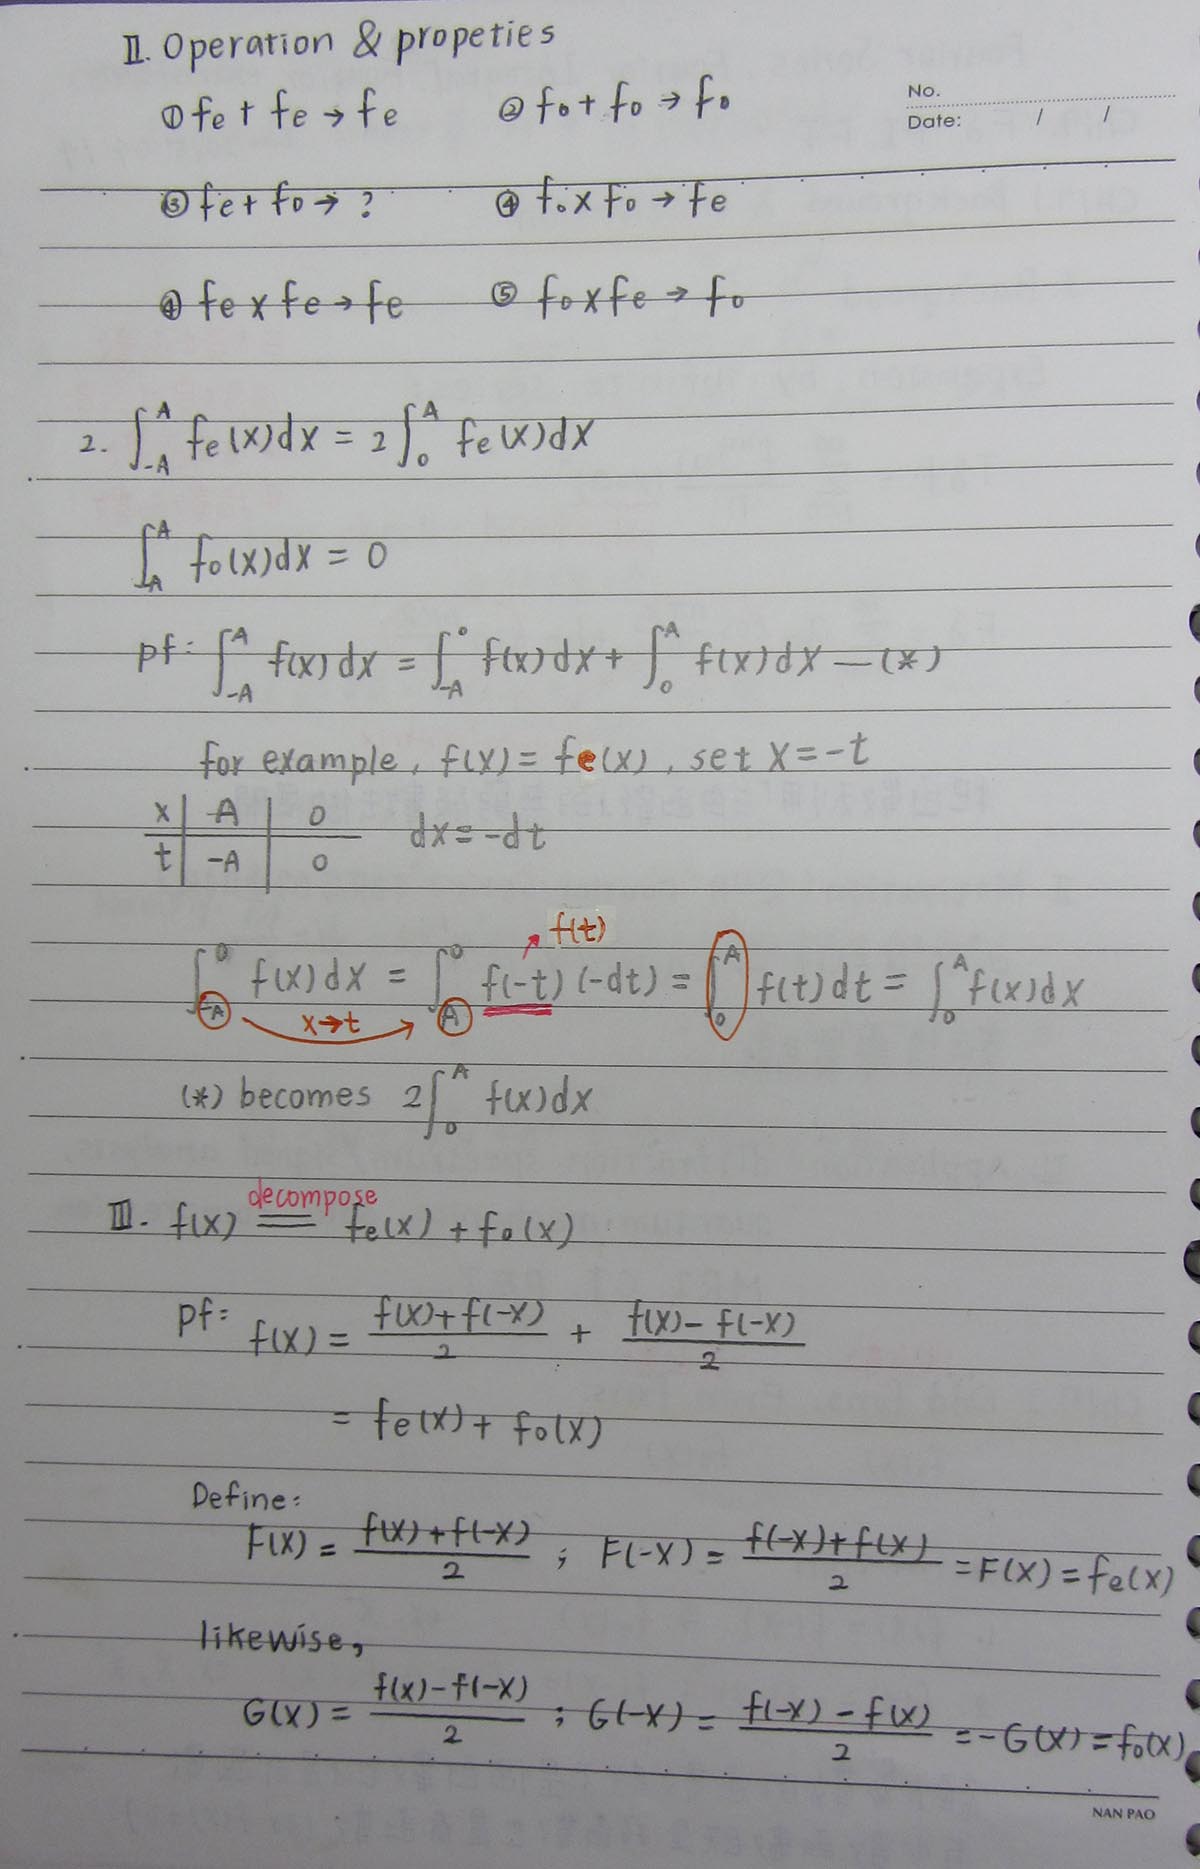 II. Operation & propeties
① fe + fe → fe   ② fo + fo → fo
No.
Date: / /
③ fe + fo → ?   ④ fo × fo → fe
④ fe × fe → fe   ⑤ fo × fe → fo
2. ∫_{-A}^{A} fe(x)dx = 2∫_{0}^{A} fe(x)dx
∫_{-A}^{A} fo(x)dx = 0
pf: ∫_{-A}^{A} f(x)dx = ∫_{-A}^{0} f(x)dx + ∫_{0}^{A} f(x)dx — (*)
for example, f(x) = fe(x), set x = -t
x | -A | 0   dx = -dt
t | -A | 0
f(t)
∫_{-A}^{0} f(x)dx = ∫_{A}^{0} f(-t)(-dt) = ∫_{0}^{A} f(t)dt = ∫_{0}^{A} f(x)dx
x→t
(*) becomes 2∫_{0}^{A} f(x)dx
decompose
III. f(x) = fe(x) + fo(x)
pf: f(x) = (f(x)+f(-x))/2 + (f(x)-f(-x))/2
= fe(x) + fo(x)
Define:
F(x) = (f(x)+f(-x))/2 ; F(-x) = (f(-x)+f(x))/2 = F(x) = fe(x)
likewise,
G(x) = (f(x)-f(-x))/2 ; G(-x) = (f(-x)-f(x))/2 = -G(x) = fo(x)
NAN PAO